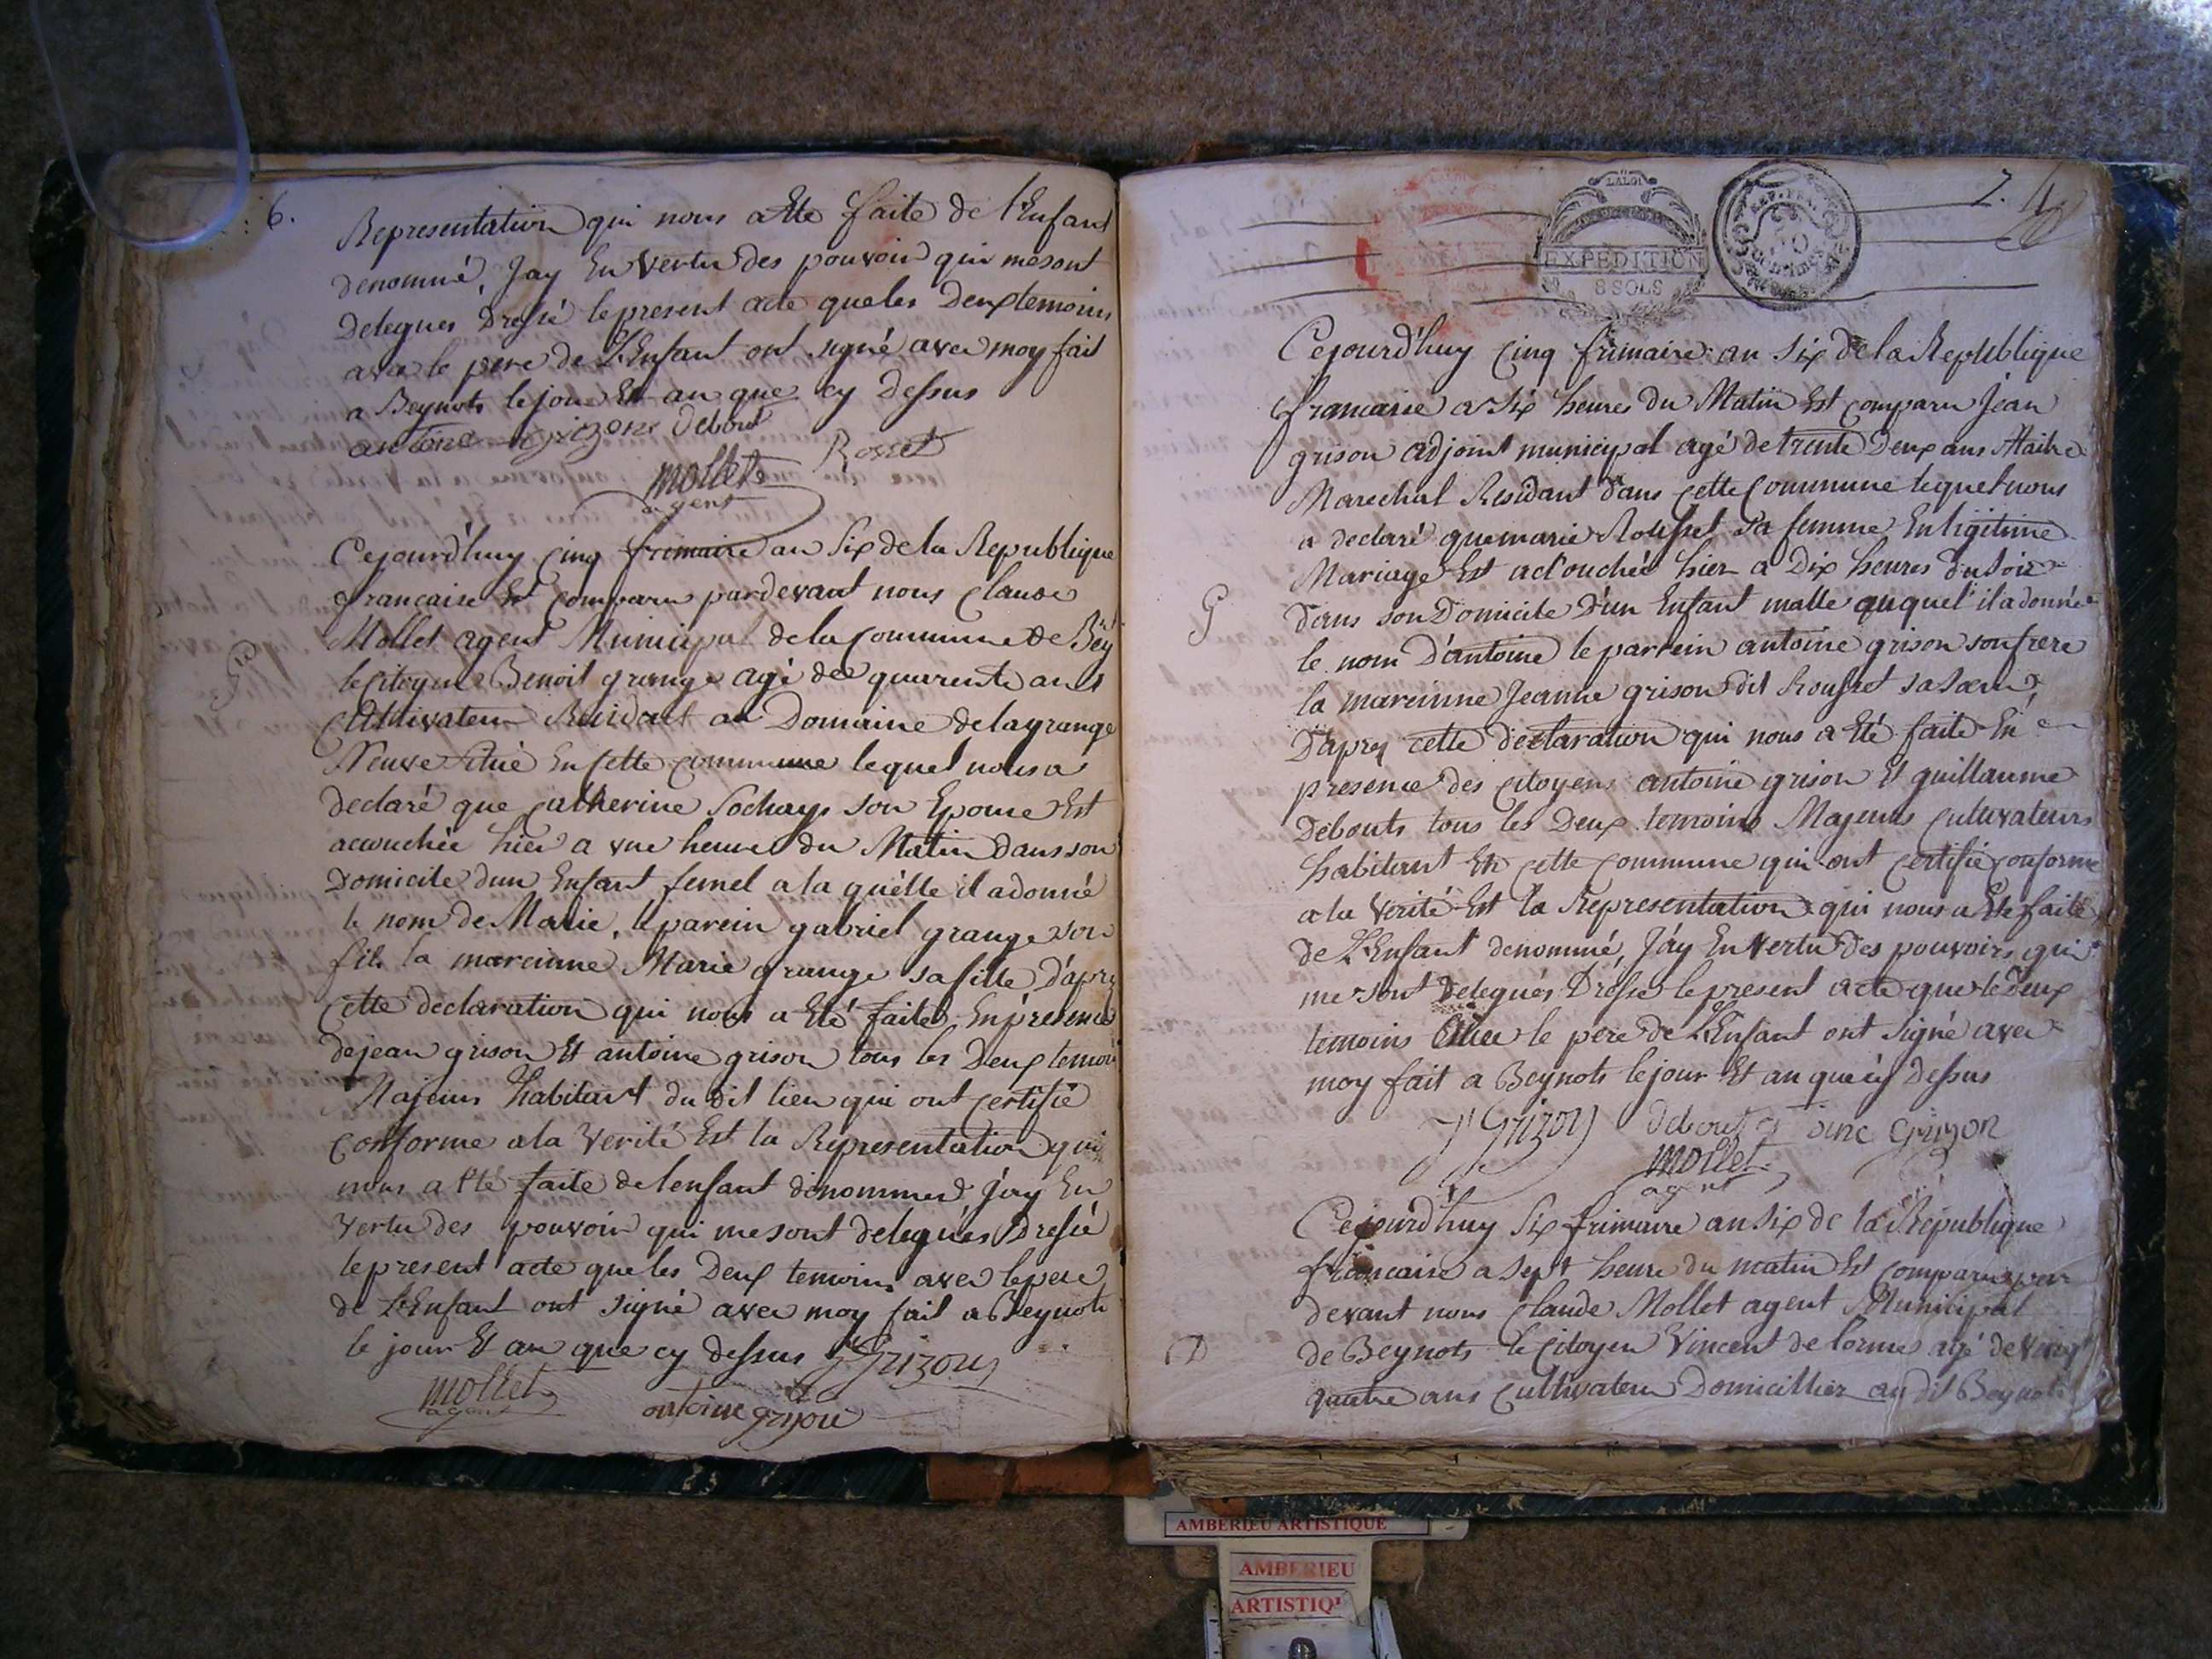 6.
Representation qui nous a Eté faite de l'Enfant
denommé, Jay En Vertu des pouvoir qui me sont
Delegues Dressé le present acte que les Deux temoins
avec le pere de L'Enfant ont signé avec moy fait
a Beynots le jour Et an que cy Dessus
antoine grizons Debout
Rosset
mollet
agent
Cejourd'huy Cinq frimaire an Six de la Republique
francaise Est Comparu pardevant nous Claude
Mollet agent Municipal de la Commune de Bey
le Citoyen Benoit grange agé de quarente ans
Cultivateur Residant au Domaine de la grange
Neuve situé En Cette Commune lequel nous a
declaré que Catherine Sochays son Epouse Est
accouchée hier a une heure du Matin dans son
Domicile dun Enfant femel a la quelle il a donné
le nom de Marie, le parein gabriel grange son
fils la mareinne Marie grange sa fille D'apry
Cette declaration qui nous a Eté faite En presence
de jean grison Et antoine grison tous les Deux temoi
Majeurs habitant du dit lieu qui ont Certifié
Conforme a la Verité Est la Representation qui
nous a Eté faite de lenfant denommed jay En
Vertu des pouvoir qui me sont delegués Dressé
le present acte que les Deux temoins avec le pere
de L'Enfant ont signé avec moy fait a Beynots
le jour Et an que cy dessus J Grizon
mollet
agent
antoine grison
7.
LA LOI
EXPÉDITION
8 SOLS
Cejourd'huy Cinq frimaire an Six de la Republique
francaise a Six heures du Matin Est Comparu Jean
grison adjoint municipal agé de trente Deux ans Maitre
Marechal Residant dans Cette Commune lequel nous
a declaré que marie Rousset sa femme En ligitime
Mariage Est accouchée hier a Dix heures du soir
G
dans son Domicile D'un Enfant malle auquel il a donné
le nom D'antoine le parrein antoine grison son frere
la mareinne Jeanne grison dit Rousset sa sœur
D'apry Cette declaration qui nous a Eté faite En
presence des Citoyens antoine grison Et guillaume
Debouts tous les Deux temoins Majeurs Cultivateurs
habitant En Cette Commune qui ont Certifié Conforme
a la Verité Est la Representation qui nous a Eté faite
de L'Enfant denommé, Jay En Vertu des pouvoirs qui
me sont Delegués Dressé le present acte que le Deux
temoins avec le pere de L'Enfant ont signé avec
moy fait a Beynots le jour Et an que cy Dessus
J Grizon debout antoine Grizon
mollet
agent
Cejourd'huy Six frimaire an Six de la Republique
francaise a Sept heure du matin Est Comparu par
devant nous Claude Mollet agent Municipal
D
de Beynots le Citoyen Vincent de lorme agé de Vingt
quatre ans Cultivateur Domicillier au dit Beynots
AMBERIEU ARTISTIQUE
AMBERIEU
ARTISTIQ